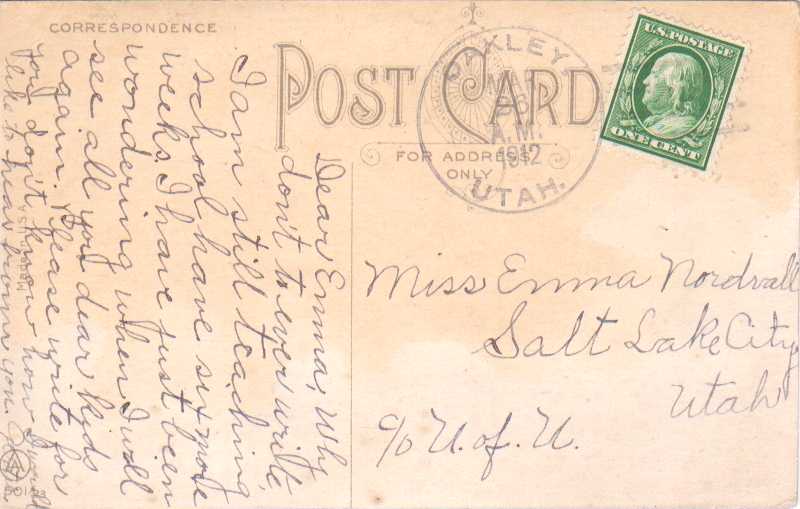 CORRESPONDENCE
POST CARD
FOR ADDRESS
ONLY
UTAH.
A.M.
1912
U.S. POSTAGE
ONE CENT
Dear Emma, Why
don't to ever write,
I am still teaching
school have six more
weeks. I have just been
wondering when I will
see all you dear kids
again. Please write for
you don't know how I would
like to hear from you.
Miss Emma Nordvall
Salt Lake City
Utah
c/o U. of U.
Made in USA